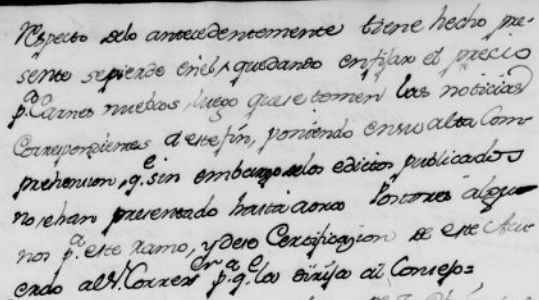 respecto delo antecedentemente tiene hecho pre-
sente sepierde enel, quedando enfijar el precio
p.ª Carnes nuebas, luego quese tomen las noticias
Correspondientes a este fin, poniendo ensu alta Com-
prehension, q.e sin embargo delos edictos publicados
no sehan presentado hasta aora Postores algu-
nos p.ª este ramo, y dese Certificazion de este Acu-
erdo al S.r Correx.or p.ª q.e la dirija al Consejo=